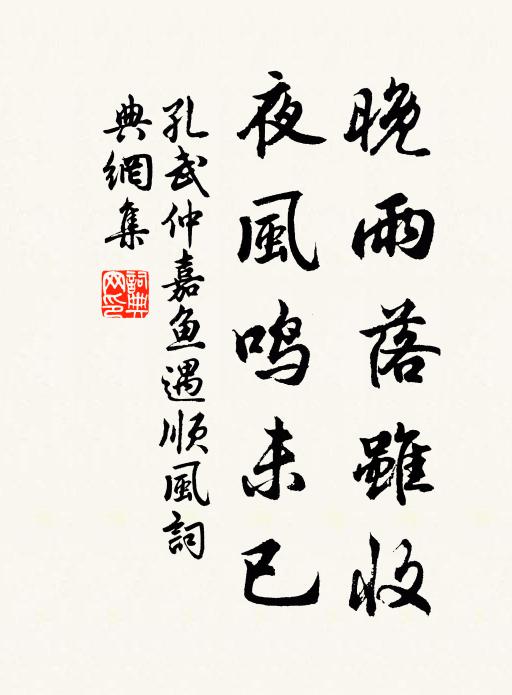 晚雨落雖收
夜風鸣未已
孔武仲嘉鱼遇順風詞
典網集
詞典
网印